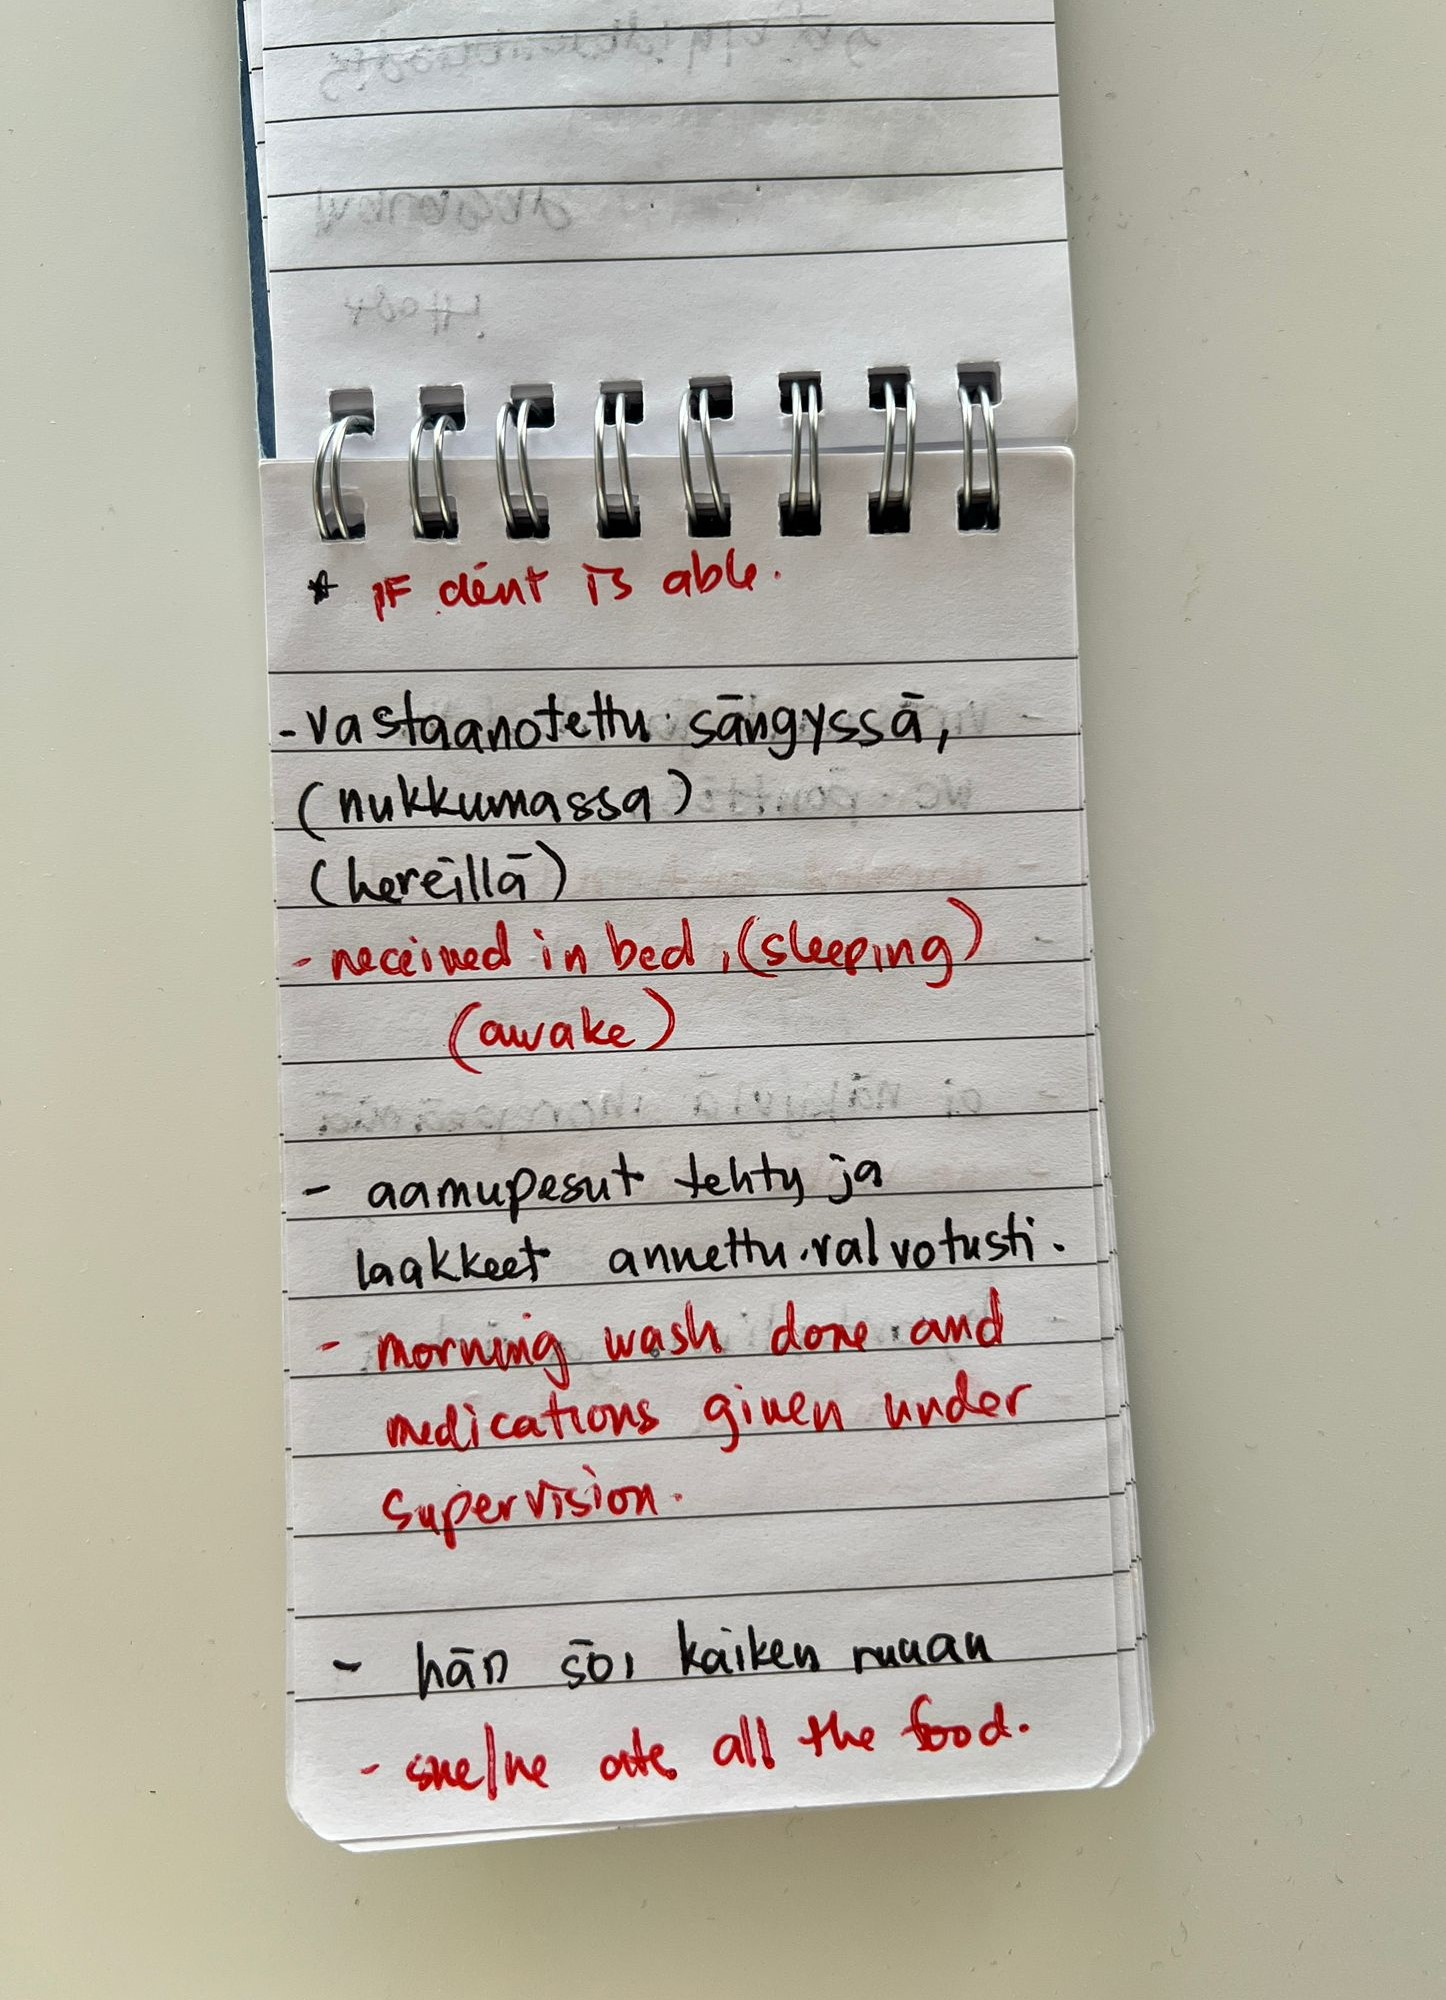 * IF client is able.
- vastaanotettu sāngyssā,
(nukkumassa)
(hereillā)
- received in bed, (sleeping)
(awake)
- aamupesut tehty ja
laakkeet annettu valvotusti.
- morning wash done and
medications given under
supervision.
- hān sōi kaiken ruuan
- she/he ate all the food.